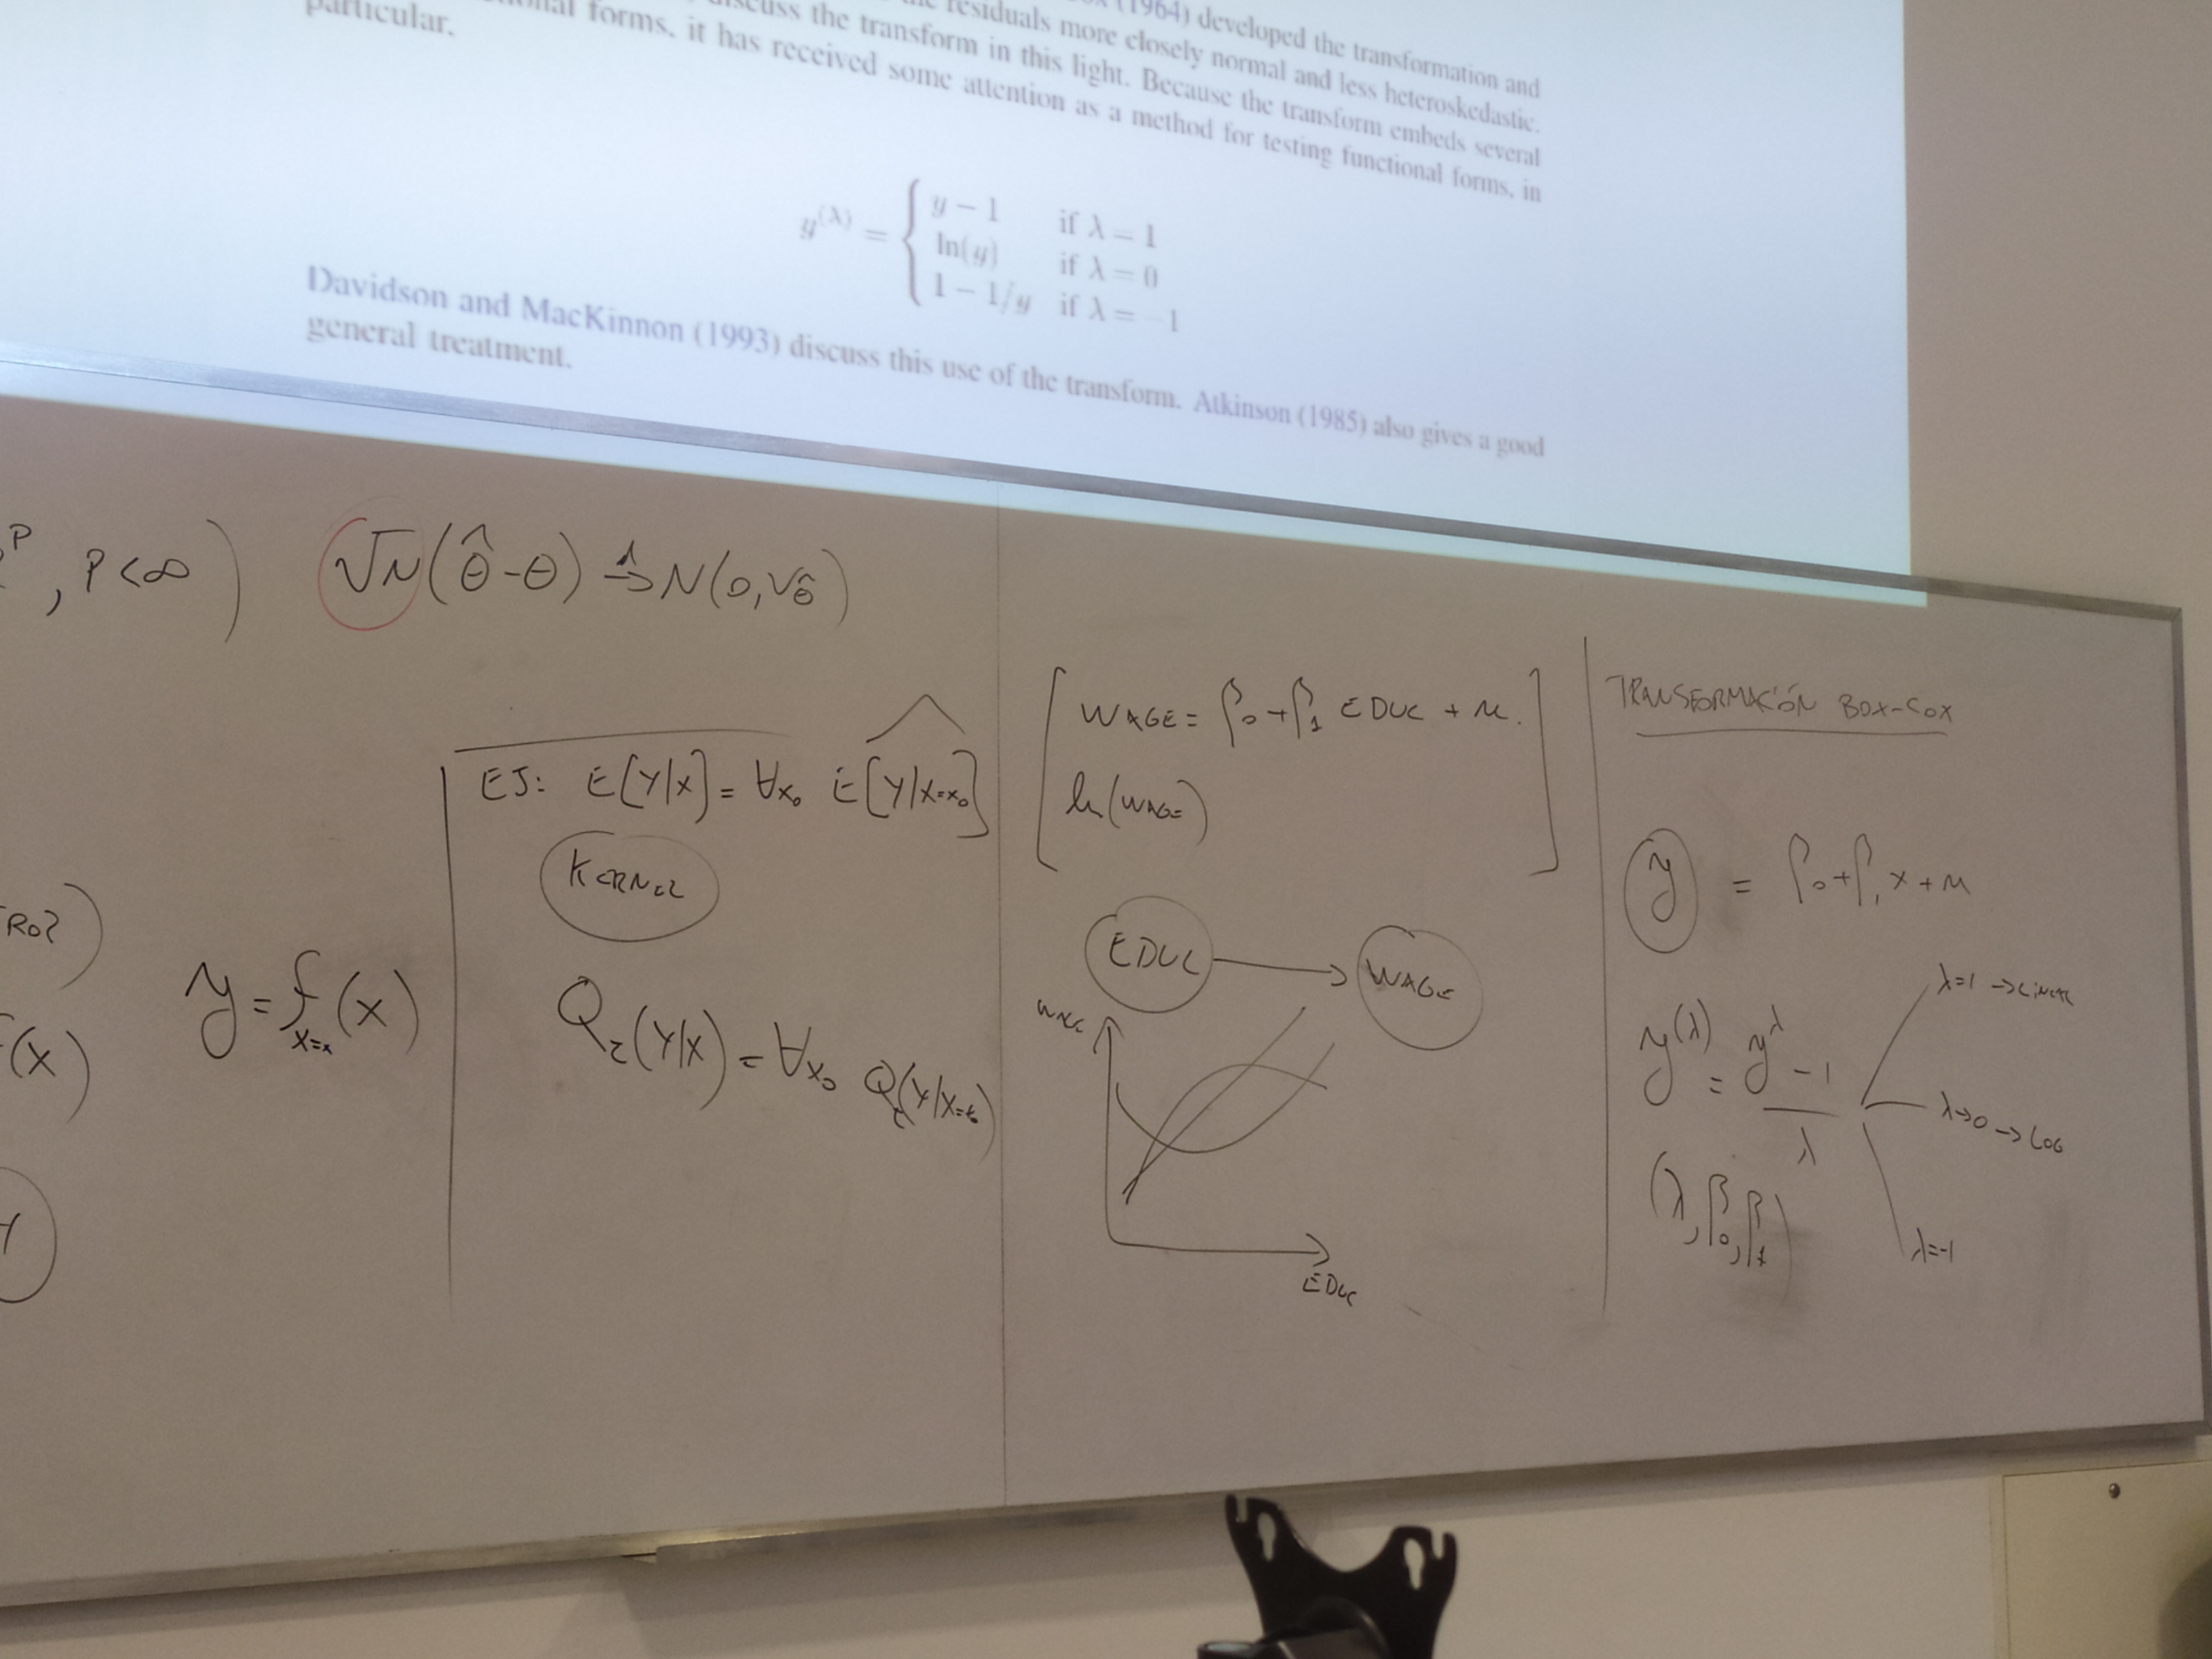 (1964) developed the transformation and
residuals more closely normal and less heteroskedastic.
discuss the transform in this light. Because the transform embeds several
forms, it has received some attention as a method for testing functional forms, in
particular.
y^(λ) = { y − 1 if λ = 1
ln(y) if λ = 0
1 − 1/y if λ = −1
Davidson and MacKinnon (1993) discuss this use of the transform. Atkinson (1985) also gives a good
general treatment.
P , P<∞ )
√N(θ̂-θ) →d N(0,Vθ̂)
y = f(x)
x=x
(x)
EJ: E[Y|X] = ∀x₀ E[Y|X=x₀]
KERNEL
Qτ(Y|X) = ∀x₀ Qτ(Y|X=t)
WAGE = β₀+β₁ EDUC + u.
ln(WAGE)
EDUC → WAGE
WAGE
EDUC
TRANSFORMACIÓN BOX-COX
y = β₀+β₁x+u
y^(λ) = (y^λ - 1)/λ
λ=1 → LINEAL
λ→0 → LOG
λ=-1
(λ, β₀, β₁)